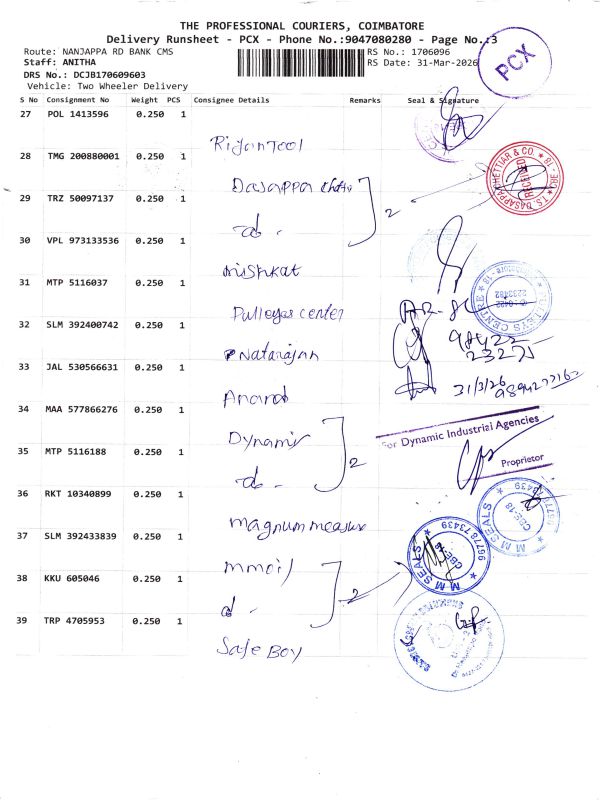 THE PROFESSIONAL COURIERS, COIMBATORE
Delivery Runsheet - PCX - Phone No.:9047080280 - Page No.:3
Route: NANJAPPA RD BANK CMS
RS No.: 1706096
Staff: ANITHA
RS Date: 31-Mar-2026
DRS No.: DCJB170609603
Vehicle: Two Wheeler Delivery
PCX
S No Consignment No Weight PCS Consignee Details Remarks Seal & Signature
27 POL 1413596 0.250 1
Rijantool
28 TMG 200880001 0.250 1
Dasappa
T.S. DASAPPA CHETTIAR & CO. CBE - 18
RECEIVED
29 TRZ 50097137 0.250 1
do - 2
30 VPL 973133536 0.250 1
mishkat
31 MTP 5116037 0.250 1
Pulleys center
32 SLM 392400742 0.250 1
98422
23275
Natarajan
33 JAL 530566631 0.250 1
31/3/26
Anand
34 MAA 577866276 0.250 1
Dynamic
For Dynamic Industrial Agencies
Proprietor
35 MTP 5116188 0.250 1
do - 2
36 RKT 10340899 0.250 1
magnum measure
M M SEALS CBE-18 96778 73439
37 SLM 392433839 0.250 1
mmoil
M M SEALS CBE-18 96778 73439
38 KKU 605046 0.250 1
d - 2
39 TRP 4705953 0.250 1
Safe Boy